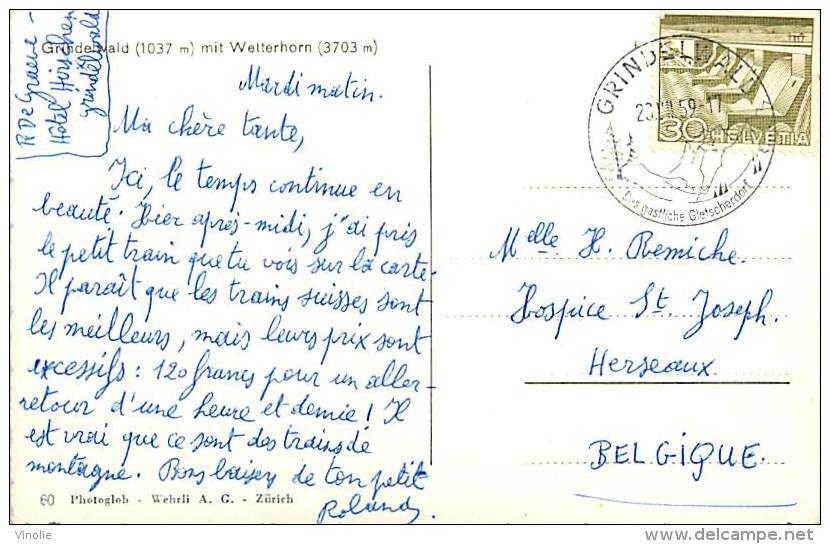 Grindelwald (1037 m) mit Wetterhorn (3703 m)
R De Graeve -
Hôtel Hirschen
Grindelwald
Mardi matin.
Ma chère tante,
Ici, le temps continue en
beauté. Hier après-midi, j'ai pris
le petit train que tu vois sur la carte.
Il paraît que les trains suisses sont
les meilleurs, mais leurs prix sont
excessifs : 120 francs pour un aller-
retour d'une heure et demie ! Il
est vrai que ce sont des trains de
montagne. Bons baisers de ton petit
Roland.
60 Photoglob - Wehrli A. G. - Zürich
GRINDELWALD
59-17
Das gastliche Gletscherdorf
30 HELVETIA
Melle H. Remiche.
Hospice St. Joseph.
Herseaux
BELGIQUE.
Vinolie
delcampe.net